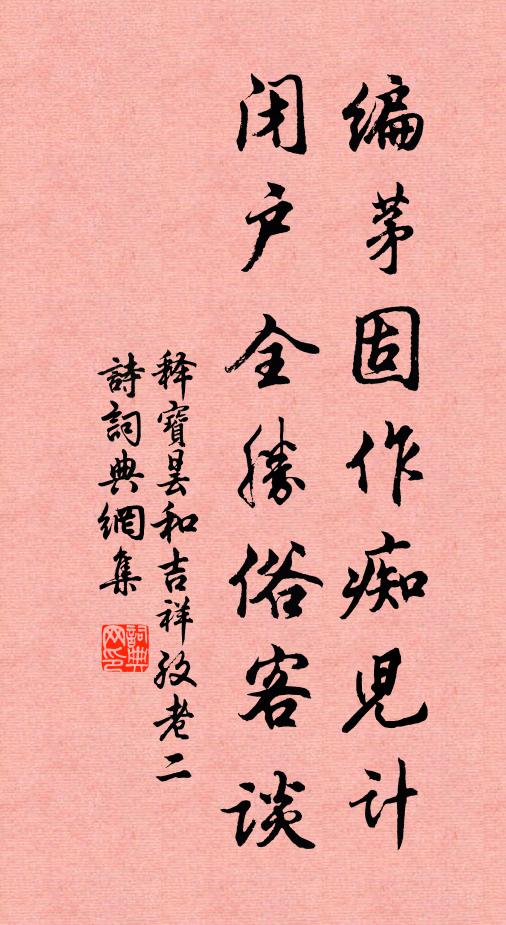 编茅固作痴児计
闭户全勝俗客谈
释寶昙和吉祥投老二
詩詞典網集
詞典网印